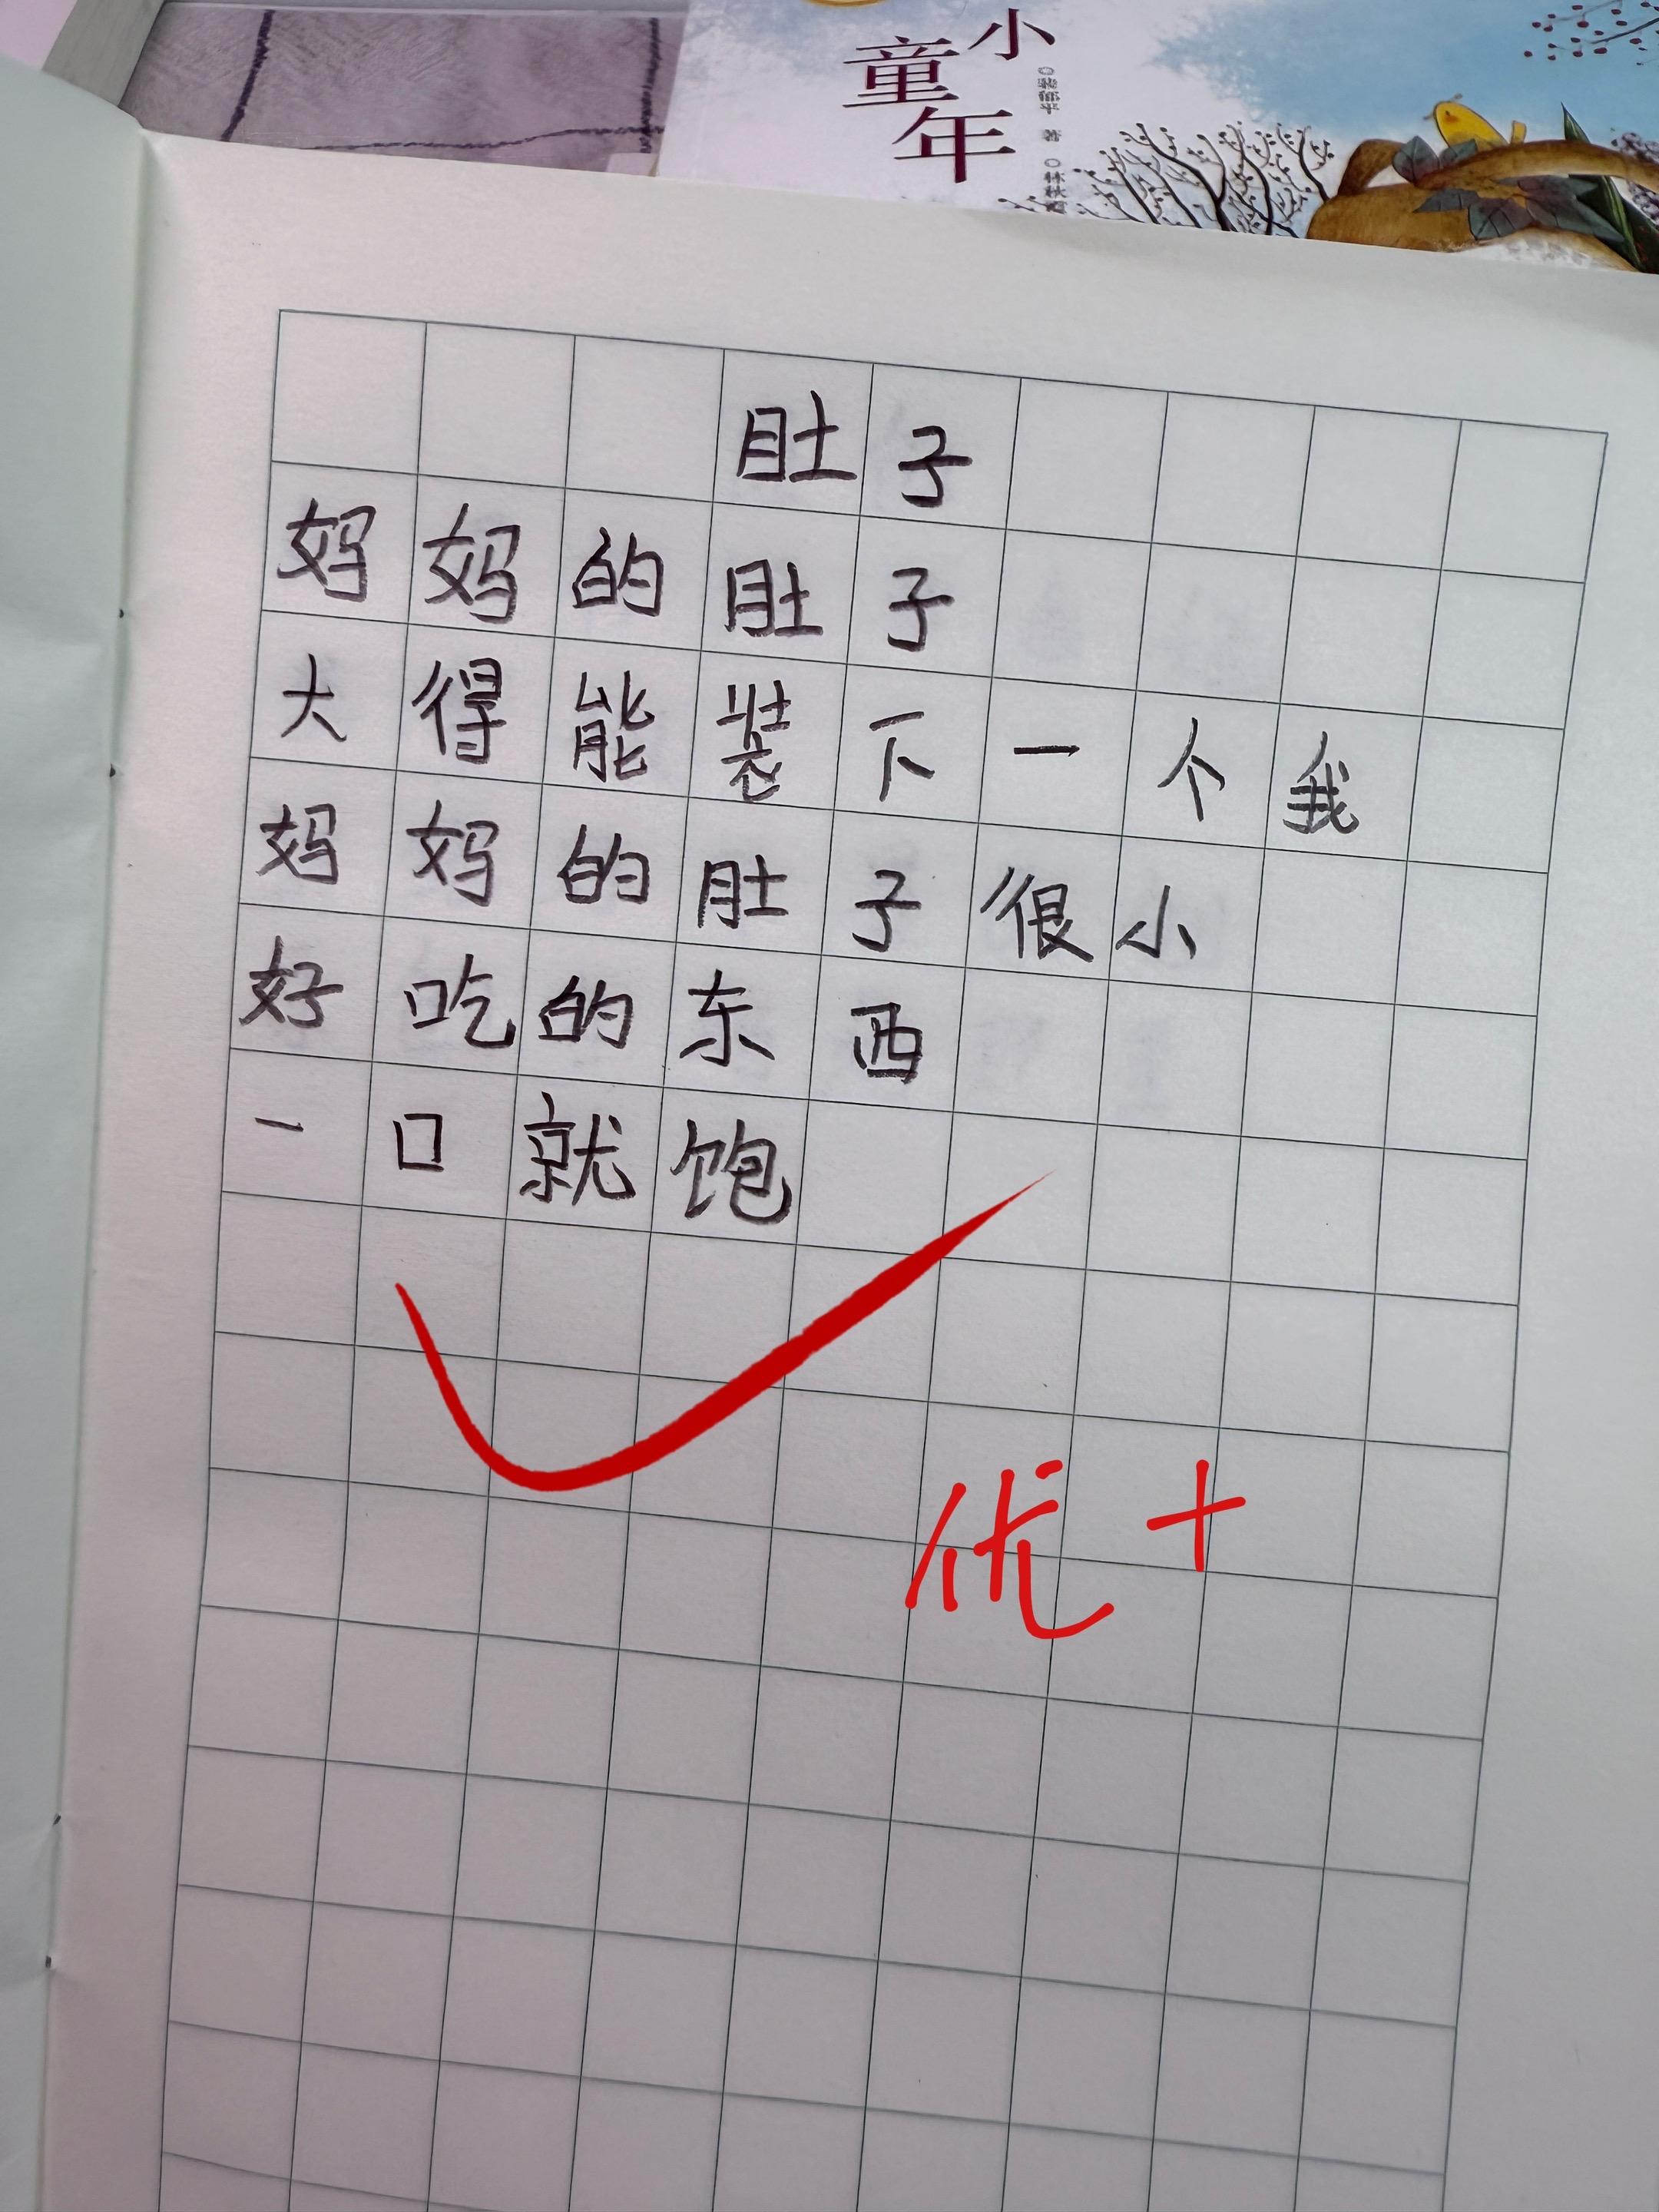 小
童年
肚子
妈妈的肚子
大得能装下一个我
妈妈的肚子很小
好吃的东西
一口就饱
优+